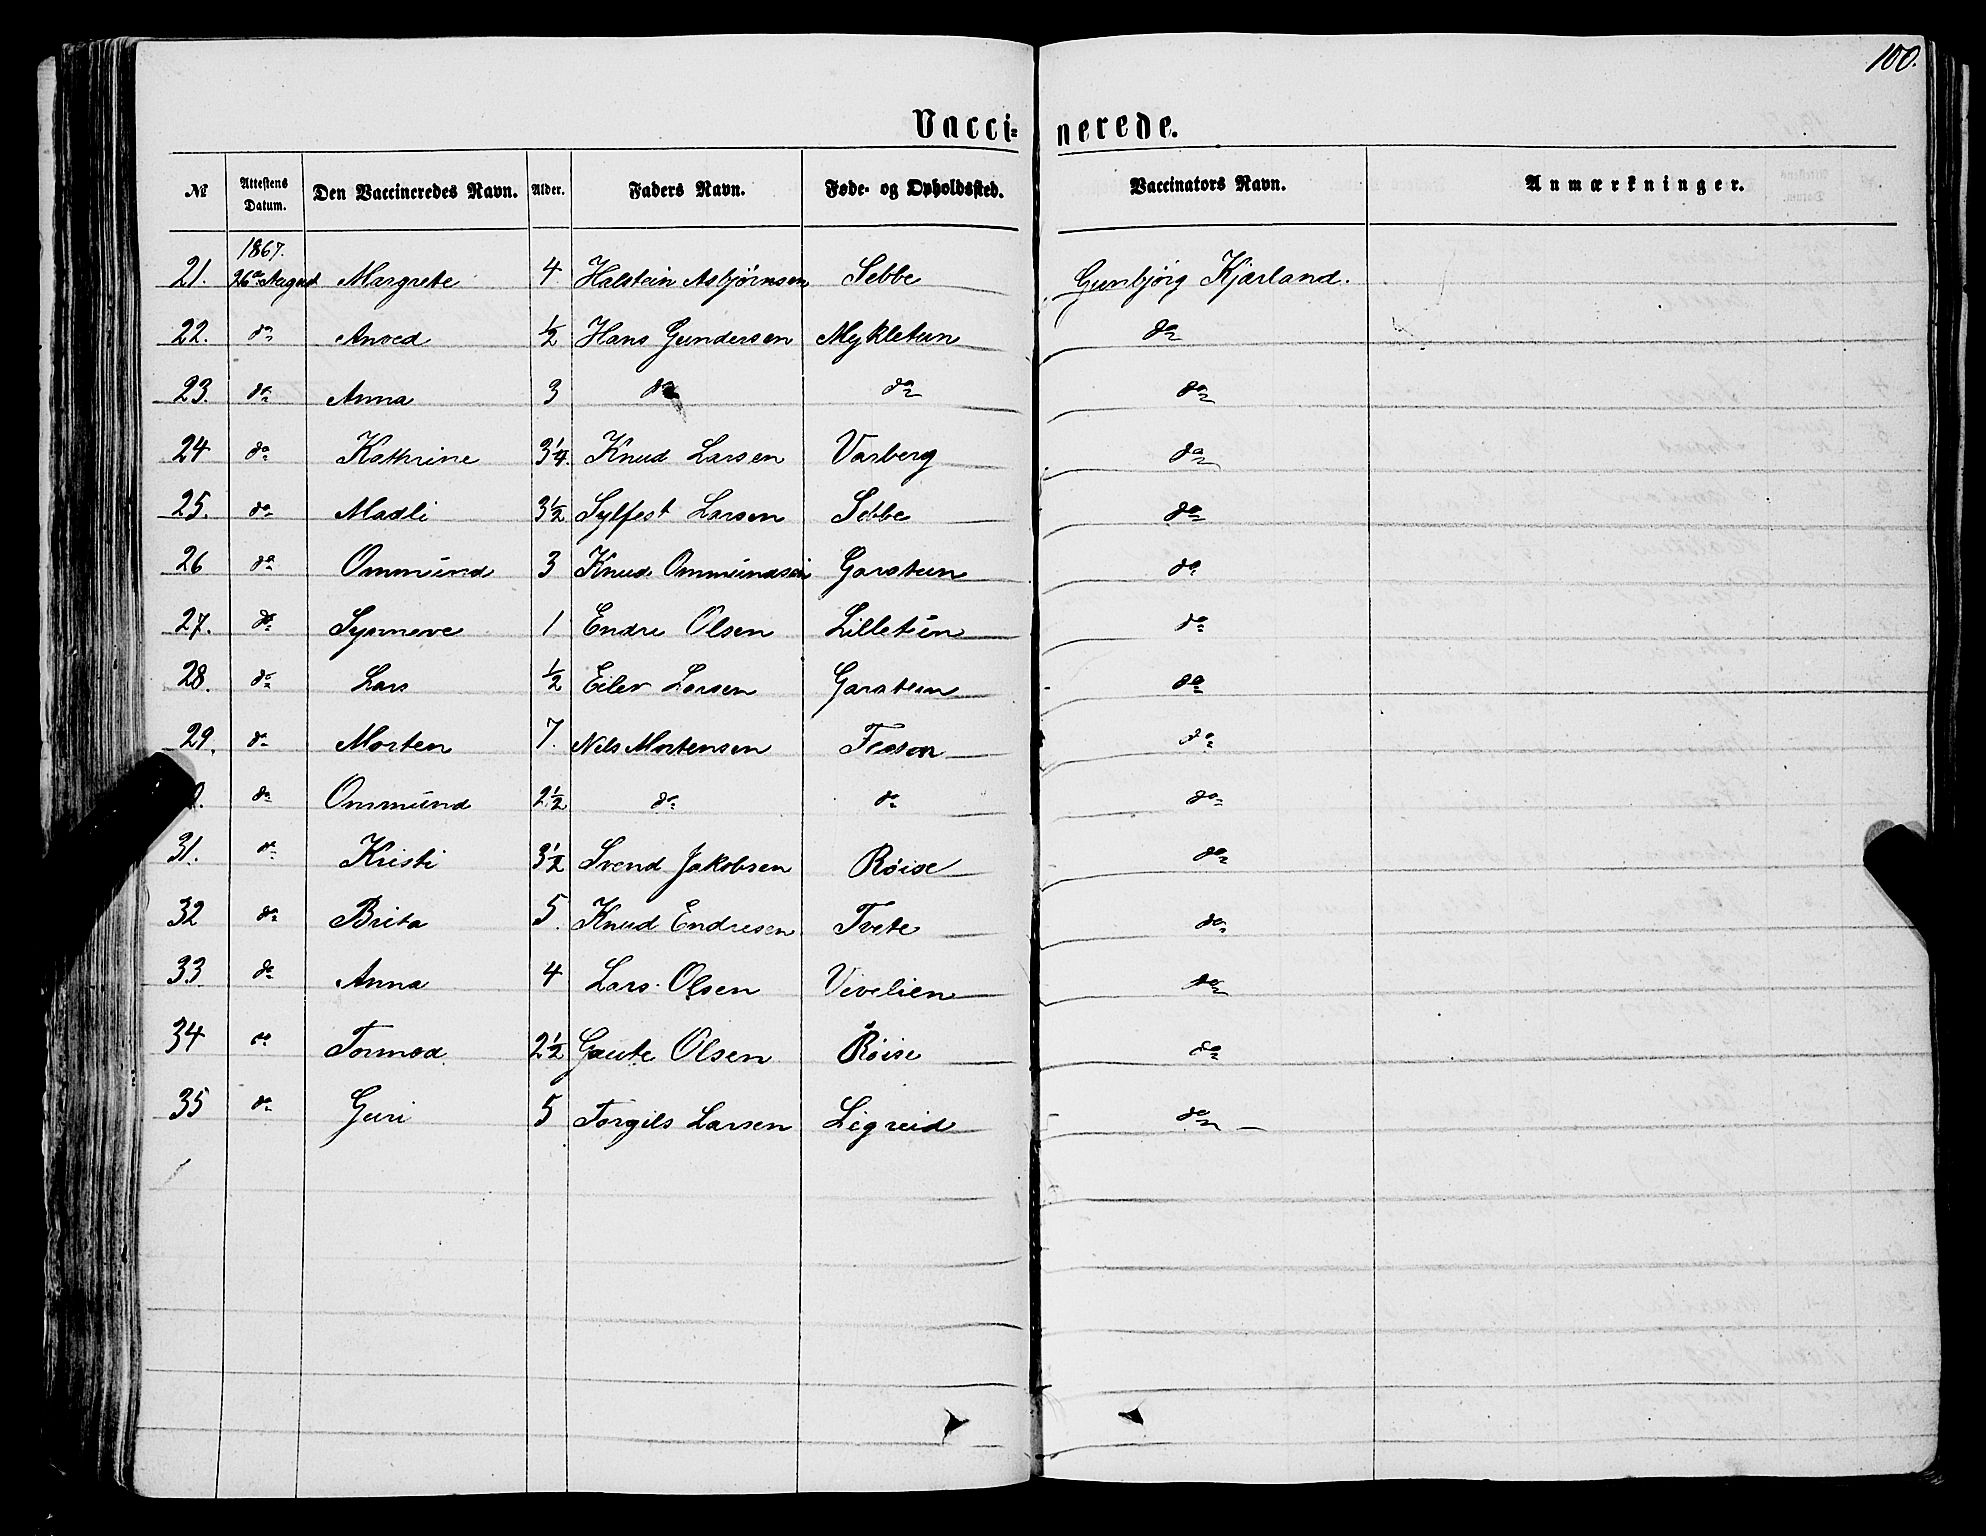 100.
Vacci= nerede.
№ Attestens Datum. Den Vaccineredes Navn. Alder. Faders Navn. Føde- og Opholdssted. Vaccinators Navn. Anmærkninger.
1867.
21. 26de August Margrete 4 Halstein Asbjørnsen Sebbe Gunbjörg Kjærland.
22. do Anved ½ Hans Gundersen Mykletun do
23. do Anna 3 do do do
24 do Kathrine 3¼ Knud Larsen Varberg do
25. do Madli 3½ Sylfest Larsen Sebbe do
26 do Ommund 3 Knud Ommundsen Garatun do
27. do Synneve 1 Endre Olsen Lilletun do
28. do Lars ½ Eilev Larsen Garatun do
29. do Morten 7. Nils Mortensen do
do Ommund 2½ do do do
31. do Kristi 3½ Svend Jakobsen Røise do
32 do Brita 5. Knud Endresen Tvete do
33. do Anna 4 Lars Olsen Vivelien do
34 do Tormod 2½ Gaute Olsen Røise do
35 do Guri 5 Torgils Larsen Ligreid do